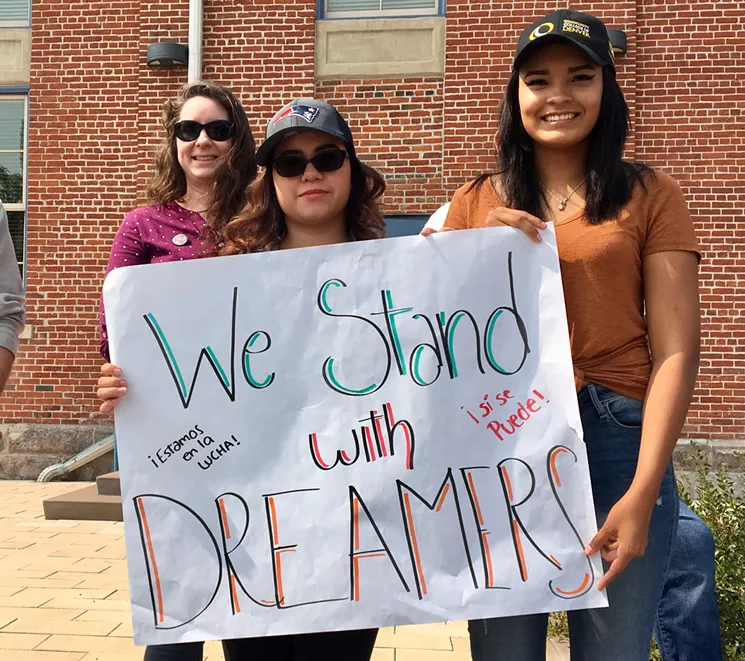 DENVER
We Stand
with
DREAMERS
¡Estamos
en la
LUCHA!
¡sí se
Puede!